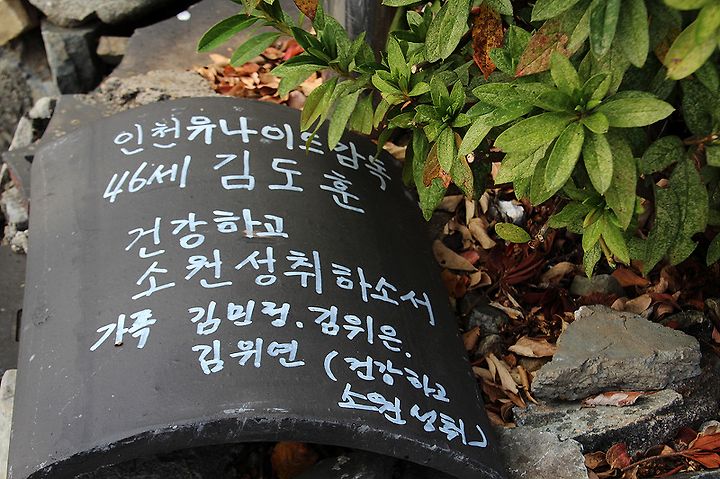 인천유나이드감독
46세 김도훈
건강하고
소원성취하소서
가족 김민정. 김위은.
김위연 (건강하고
소원성취)